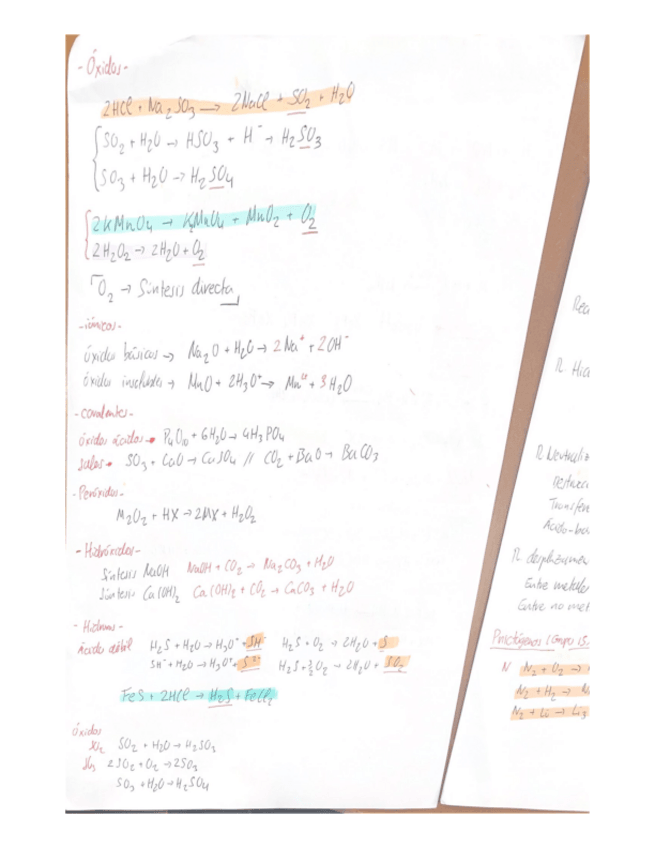 - Óxidos -
2HCl + Na2SO3 → 2NaCl + SO2 + H2O
SO2 + H2O → HSO3 + H⁻ → H2SO3
SO3 + H2O → H2SO4
2KMnO4 → K2MnO4 + MnO2 + O2
2H2O2 → 2H2O + O2
O2 → Síntesis directa
- iónicos -
óxidos básicos → Na2O + H2O → 2Na⁺ + 2OH⁻
óxidos insolubles → MnO + 2H3O⁺ → Mn + 3H2O
- covalentes -
óxidos ácidos → P4O10 + 6H2O → 4H3PO4
sales → SO3 + CaO → CaSO4 // CO2 + BaO → BaCO3
- Peróxidos -
M2O2 + HX → 2MX + H2O2
- Hidróxidos -
Síntesis NaOH NaOH + CO2 → Na2CO3 + H2O
Síntesis Ca(OH)2 Ca(OH)2 + CO2 → CaCO3 + H2O
- Hidruros -
ácido débil H2S + H2O → H3O⁺ + SH⁻ H2S + O2 → 2H2O + S
SH⁻ + H2O → H3O⁺ + S²⁻ H2S + 3/2 O2 → 2H2O + SO2
FeS + 2HCl → H2S + FeCl2
óxidos
SO2 SO2 + H2O → H2SO3
SO3 2SO2 + O2 → 2SO3
SO3 + H2O → H2SO4
R. Neutraliz
Transfer
Ácido-ba
R. desplazamien
Entre metales
Entre no met
Pnictógenos (Grupo 15
N N2 + O2 →
N2 + H2 → N
N2 + Li → Li3